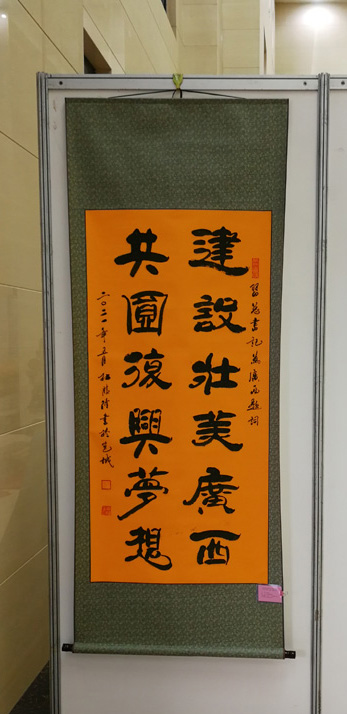 習總書記為廣西題詞
建設壯美廣西
共圓復興夢想
二〇二一年五月 書於邕城